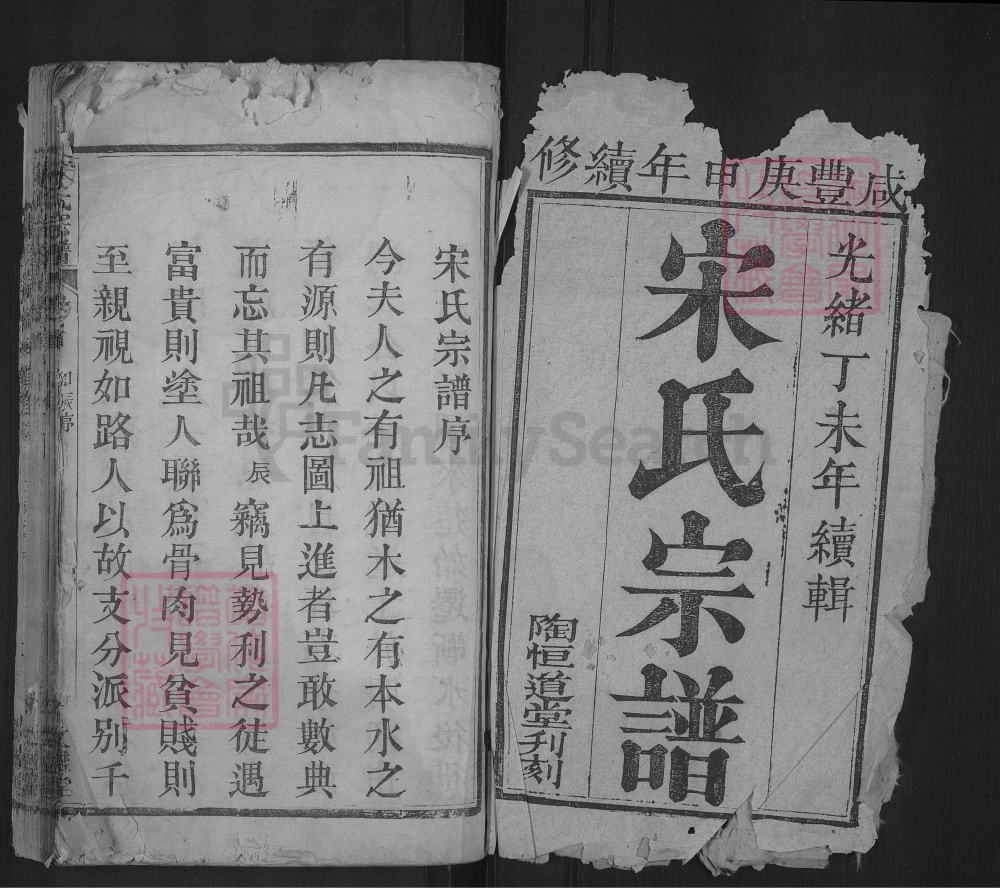 咸豐庚申年續修
光緒丁未年續輯
宋氏宗譜
陶恒道堂刋刻
宋氏宗譜序
今夫人之有祖猶木之有本水之
有源則凡志圖上進者豈敢數典
而忘其祖哉辰竊見勢利之徒遇
富貴則塗人聯爲骨肉見貧賤則
至親視如路人以故支分派别千
FamilySearch